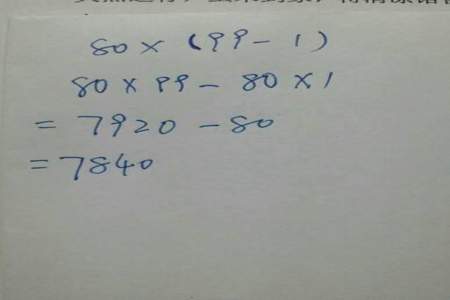 80 × (99 - 1)
80 × 99 - 80 × 1
= 7920 - 80
= 7840